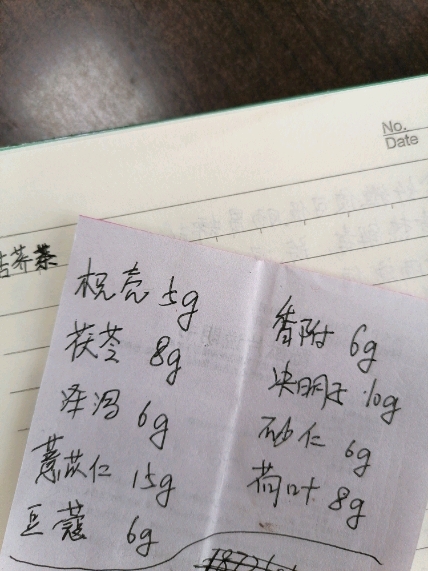 No.
Date
苦荞茶
枳壳 5g
茯苓 8g
泽泻 6g
薏苡仁 15g
豆蔻 6g
香附 6g
决明子 10g
砂仁 6g
荷叶 8g